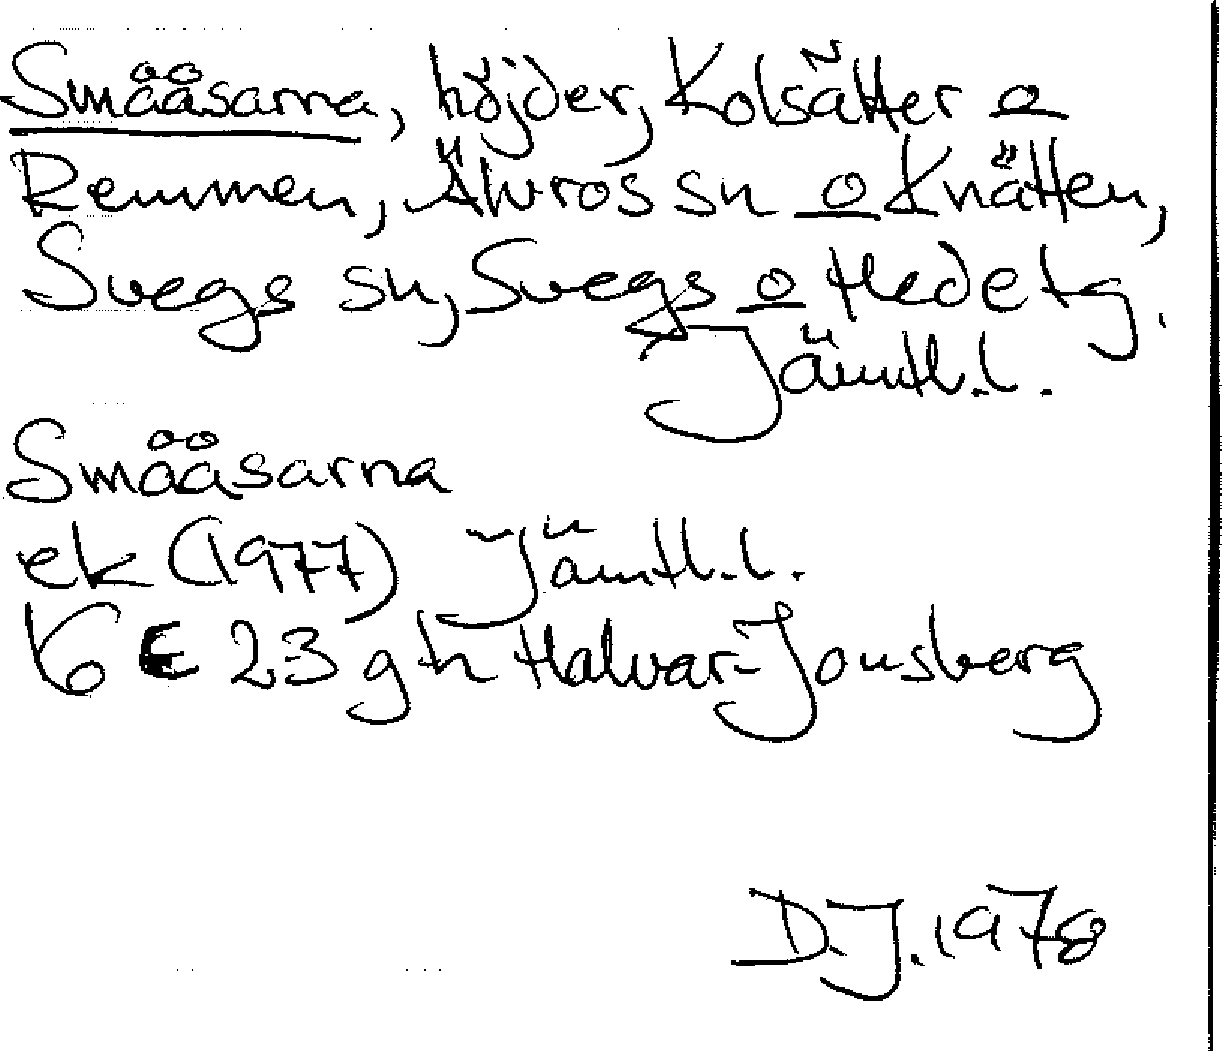 Smååsarna, höjder, Kolsätter o
Remmen, Älvros sn o Knätten,
Svegs sn, Svegs o Hede tg.
Jämtl.l.
Smååsarna
ek (1977) Jämtl.l.
16 E 23 gh Halvar-Jonsberg
D.J. 1978